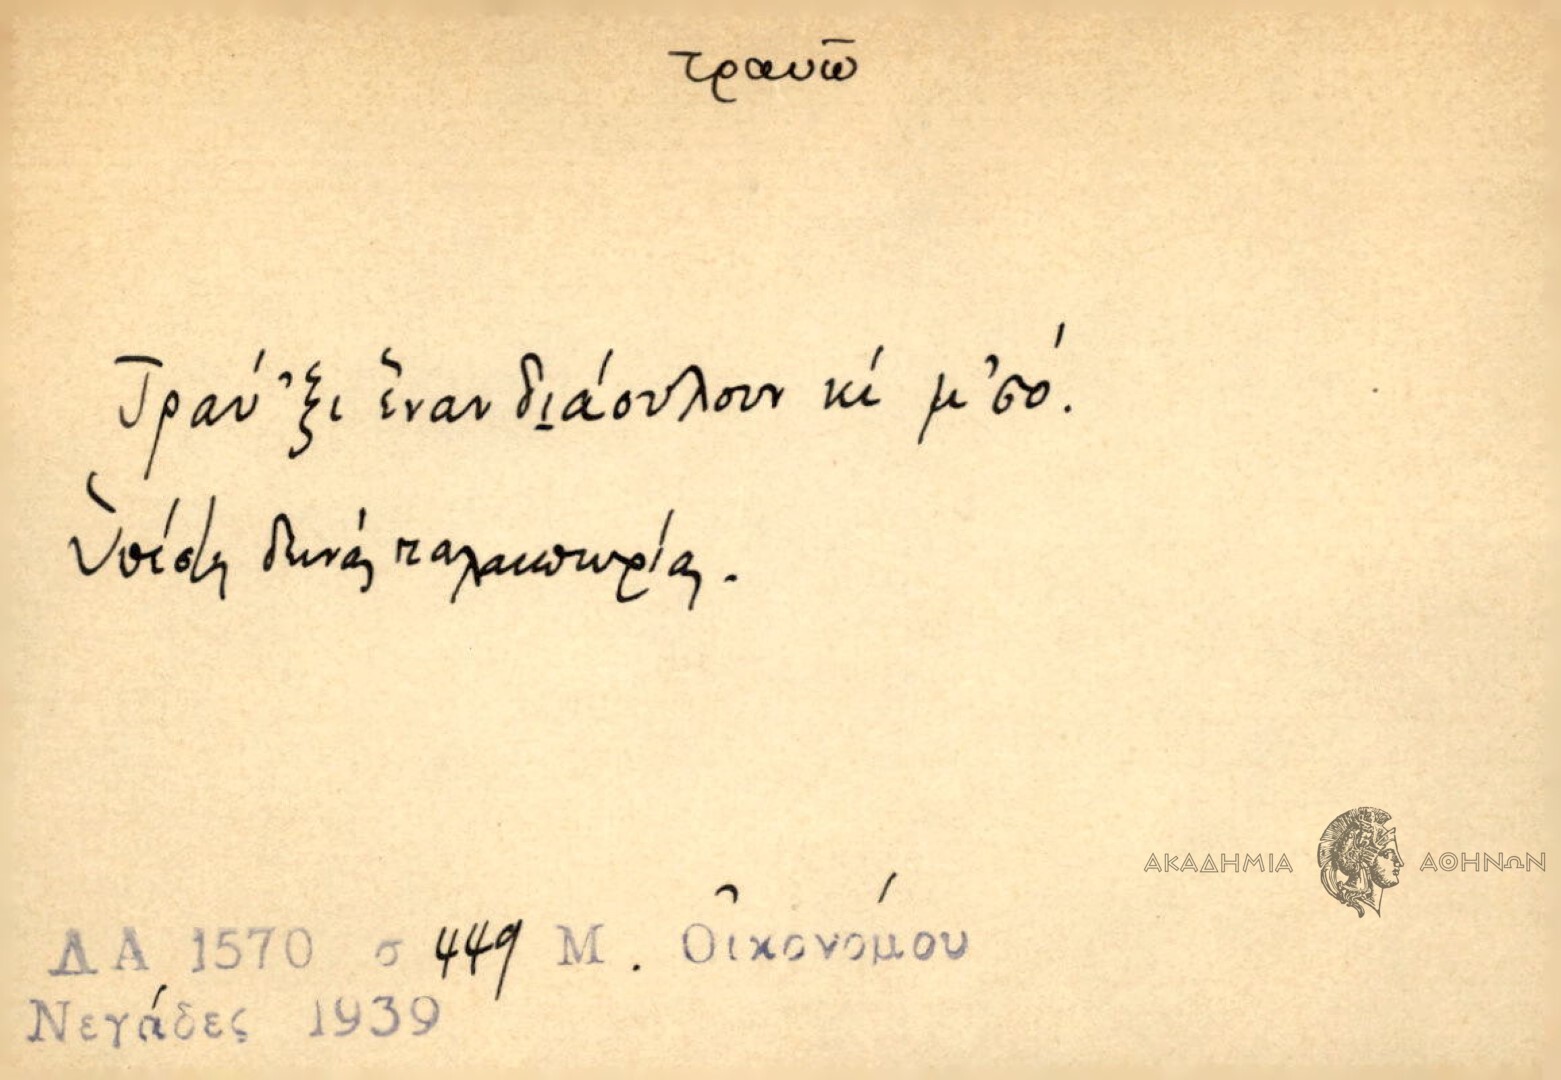 τραυῶ
Τραύ'ξι ἕναν διάουλουν κί μ'σό.
Ὑπέστη δεινάς ταλαιπωρίας.
ΑΚΑΔΗΜΙΑ ΑΘΗΝΩΝ
ΔΑ 1570 σ 449 Μ. Οἰκονόμου
Νεγάδες 1939